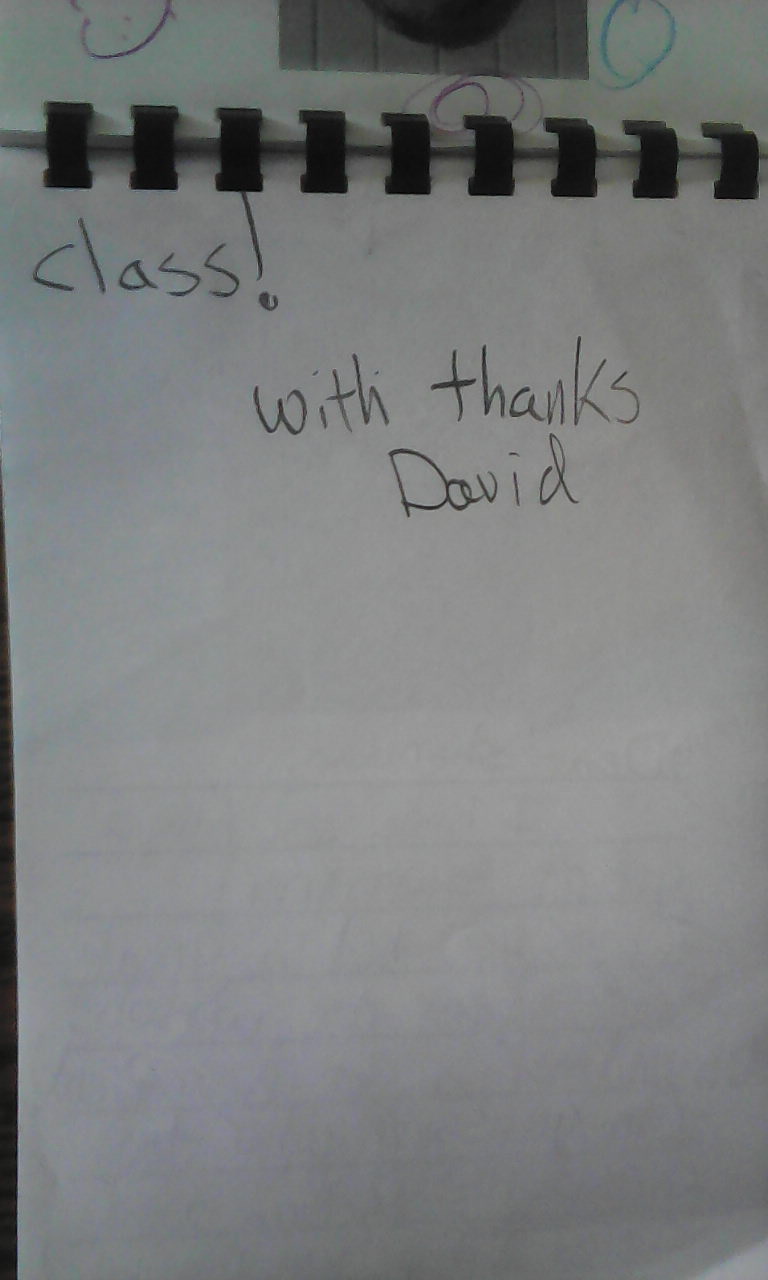 class!
with thanks
David